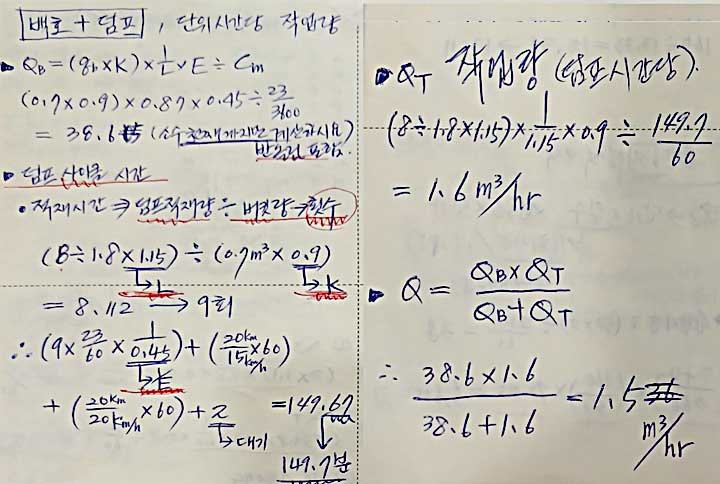 배호 + 덤프, 단위시간당 작업량
Q_B = (q_b × K) × 1/L × E ÷ Cm
(0.7 × 0.9) × 0.87 × 0.45 ÷ 23/3600
= 38.6 (소수 첫째 계산하시요
반올림 포함)
덤프 사이클 시간
• 적재시간 ⇒ 덤프적재량 ÷ 버켓량 → 횟수
(8 ÷ 1.8 × 1.15) ÷ (0.7m³ × 0.9)
↳ L ↳ K
= 8.112 → 9회
∴ (9 × 23/60 × 1/0.45) + (20km/15km/h × 60)
↳ E
+ (20km/20km/h × 60) + 2 = 149.67
↳ 대기
149.7분
Q_T 작업량 (덤프시간당).
(8 ÷ 1.8 × 1.15) × 1/1.15 × 0.9 ÷ 149.7/60
= 1.6 m³/hr
Q = Q_B × Q_T / Q_B + Q_T
∴ 38.6 × 1.6 / 38.6 + 1.6 = 1.5 m³/hr